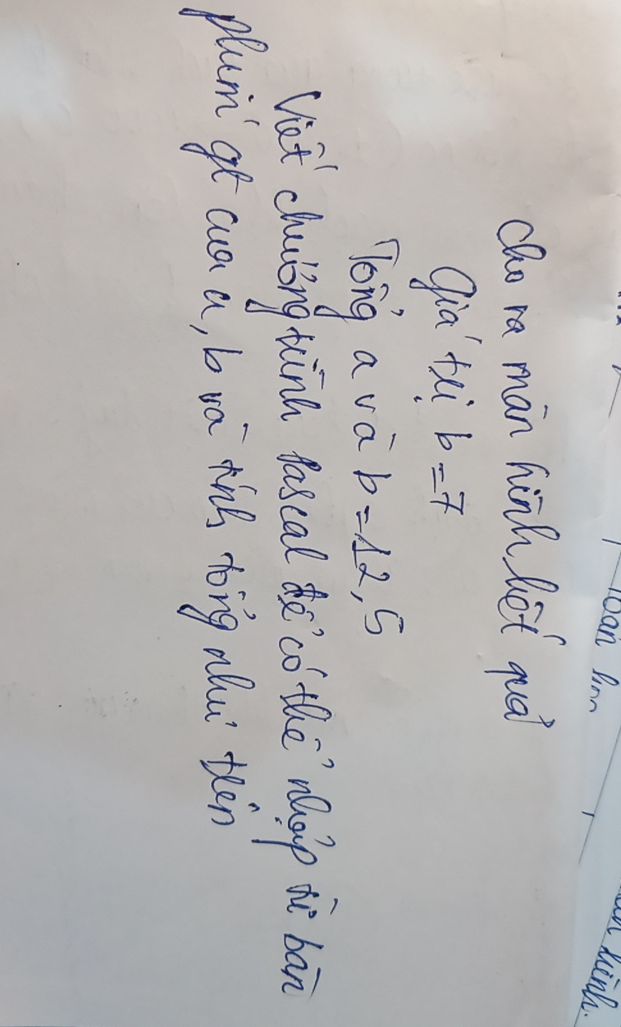 cho ra màn hình kết quả
Giá trị b = 7
Tổng a và b = 12,5
Viết chương trình Pascal để có thể nhập từ bàn
phím gt của a, b và tính tổng như trên